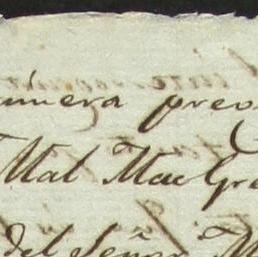 imera preo
Mal MacGre
del Señor M